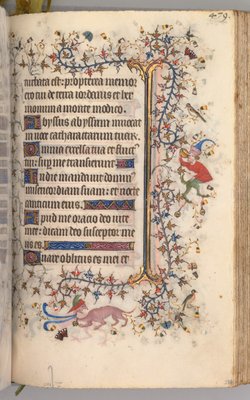 479.
turbata est: propterea memor
ero tui de terra iordanis et her
monium a monte modico.
Abyssus abyssum inuocat
in uoce catharactarum tuarum.
Omnia excelsa tua et fluct
tui: super me transierunt.
In die mandauit domin
misericordiam suam: et nocte
canticum eius.
Apud me oracio deo uite
mee: dicam deo susceptor me
us es.
Quare oblitus es mei et